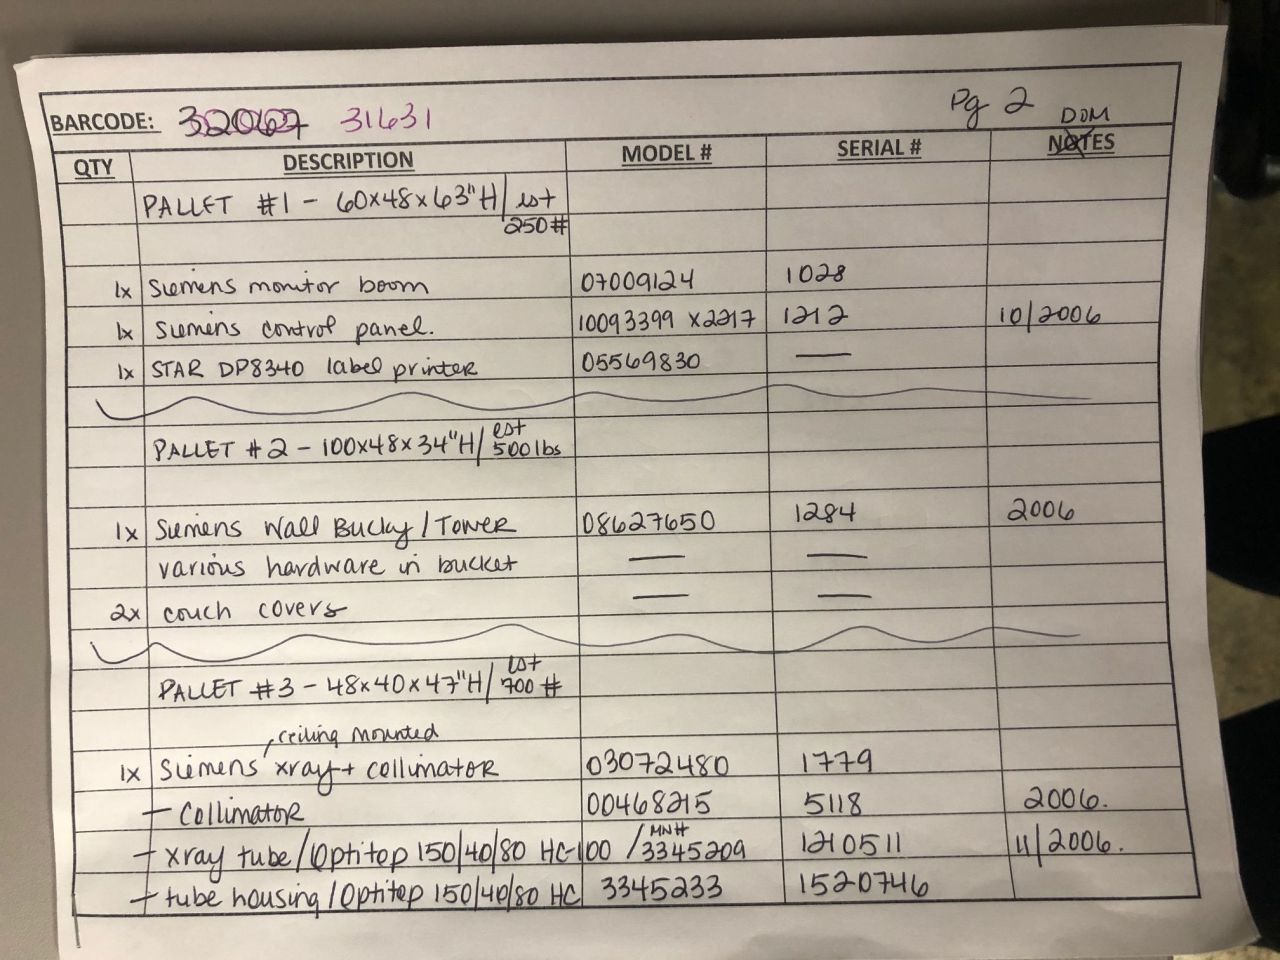 BARCODE: 32067 31631 Pg 2
DOM
QTY DESCRIPTION MODEL # SERIAL # NOTES
PALLET #1 - 60x48x63"H/ est
250#
1x Siemens monitor boom 07009124 1028
1x Siemens control panel. 10093399 x2217 1212 10/2006
1x STAR DP8340 label printer 05569830 —
PALLET #2 - 100x48x34"H/ est
500lbs
1x Siemens Wall Bucky/Tower 08627650 1284 2006
various hardware in bucket — —
2x couch covers — —
PALLET #3 - 48x40x47"H/ est
700 #
, ceiling mounted
1x Siemens xray + collimator 03072480 1779
- Collimator 00468215 5118 2006.
- xray tube/Optitop 150/40/80 HC-100 / MN# 3345209 1210511 11/2006.
- tube housing/Optitop 150/40/80 HC 3345233 1520746